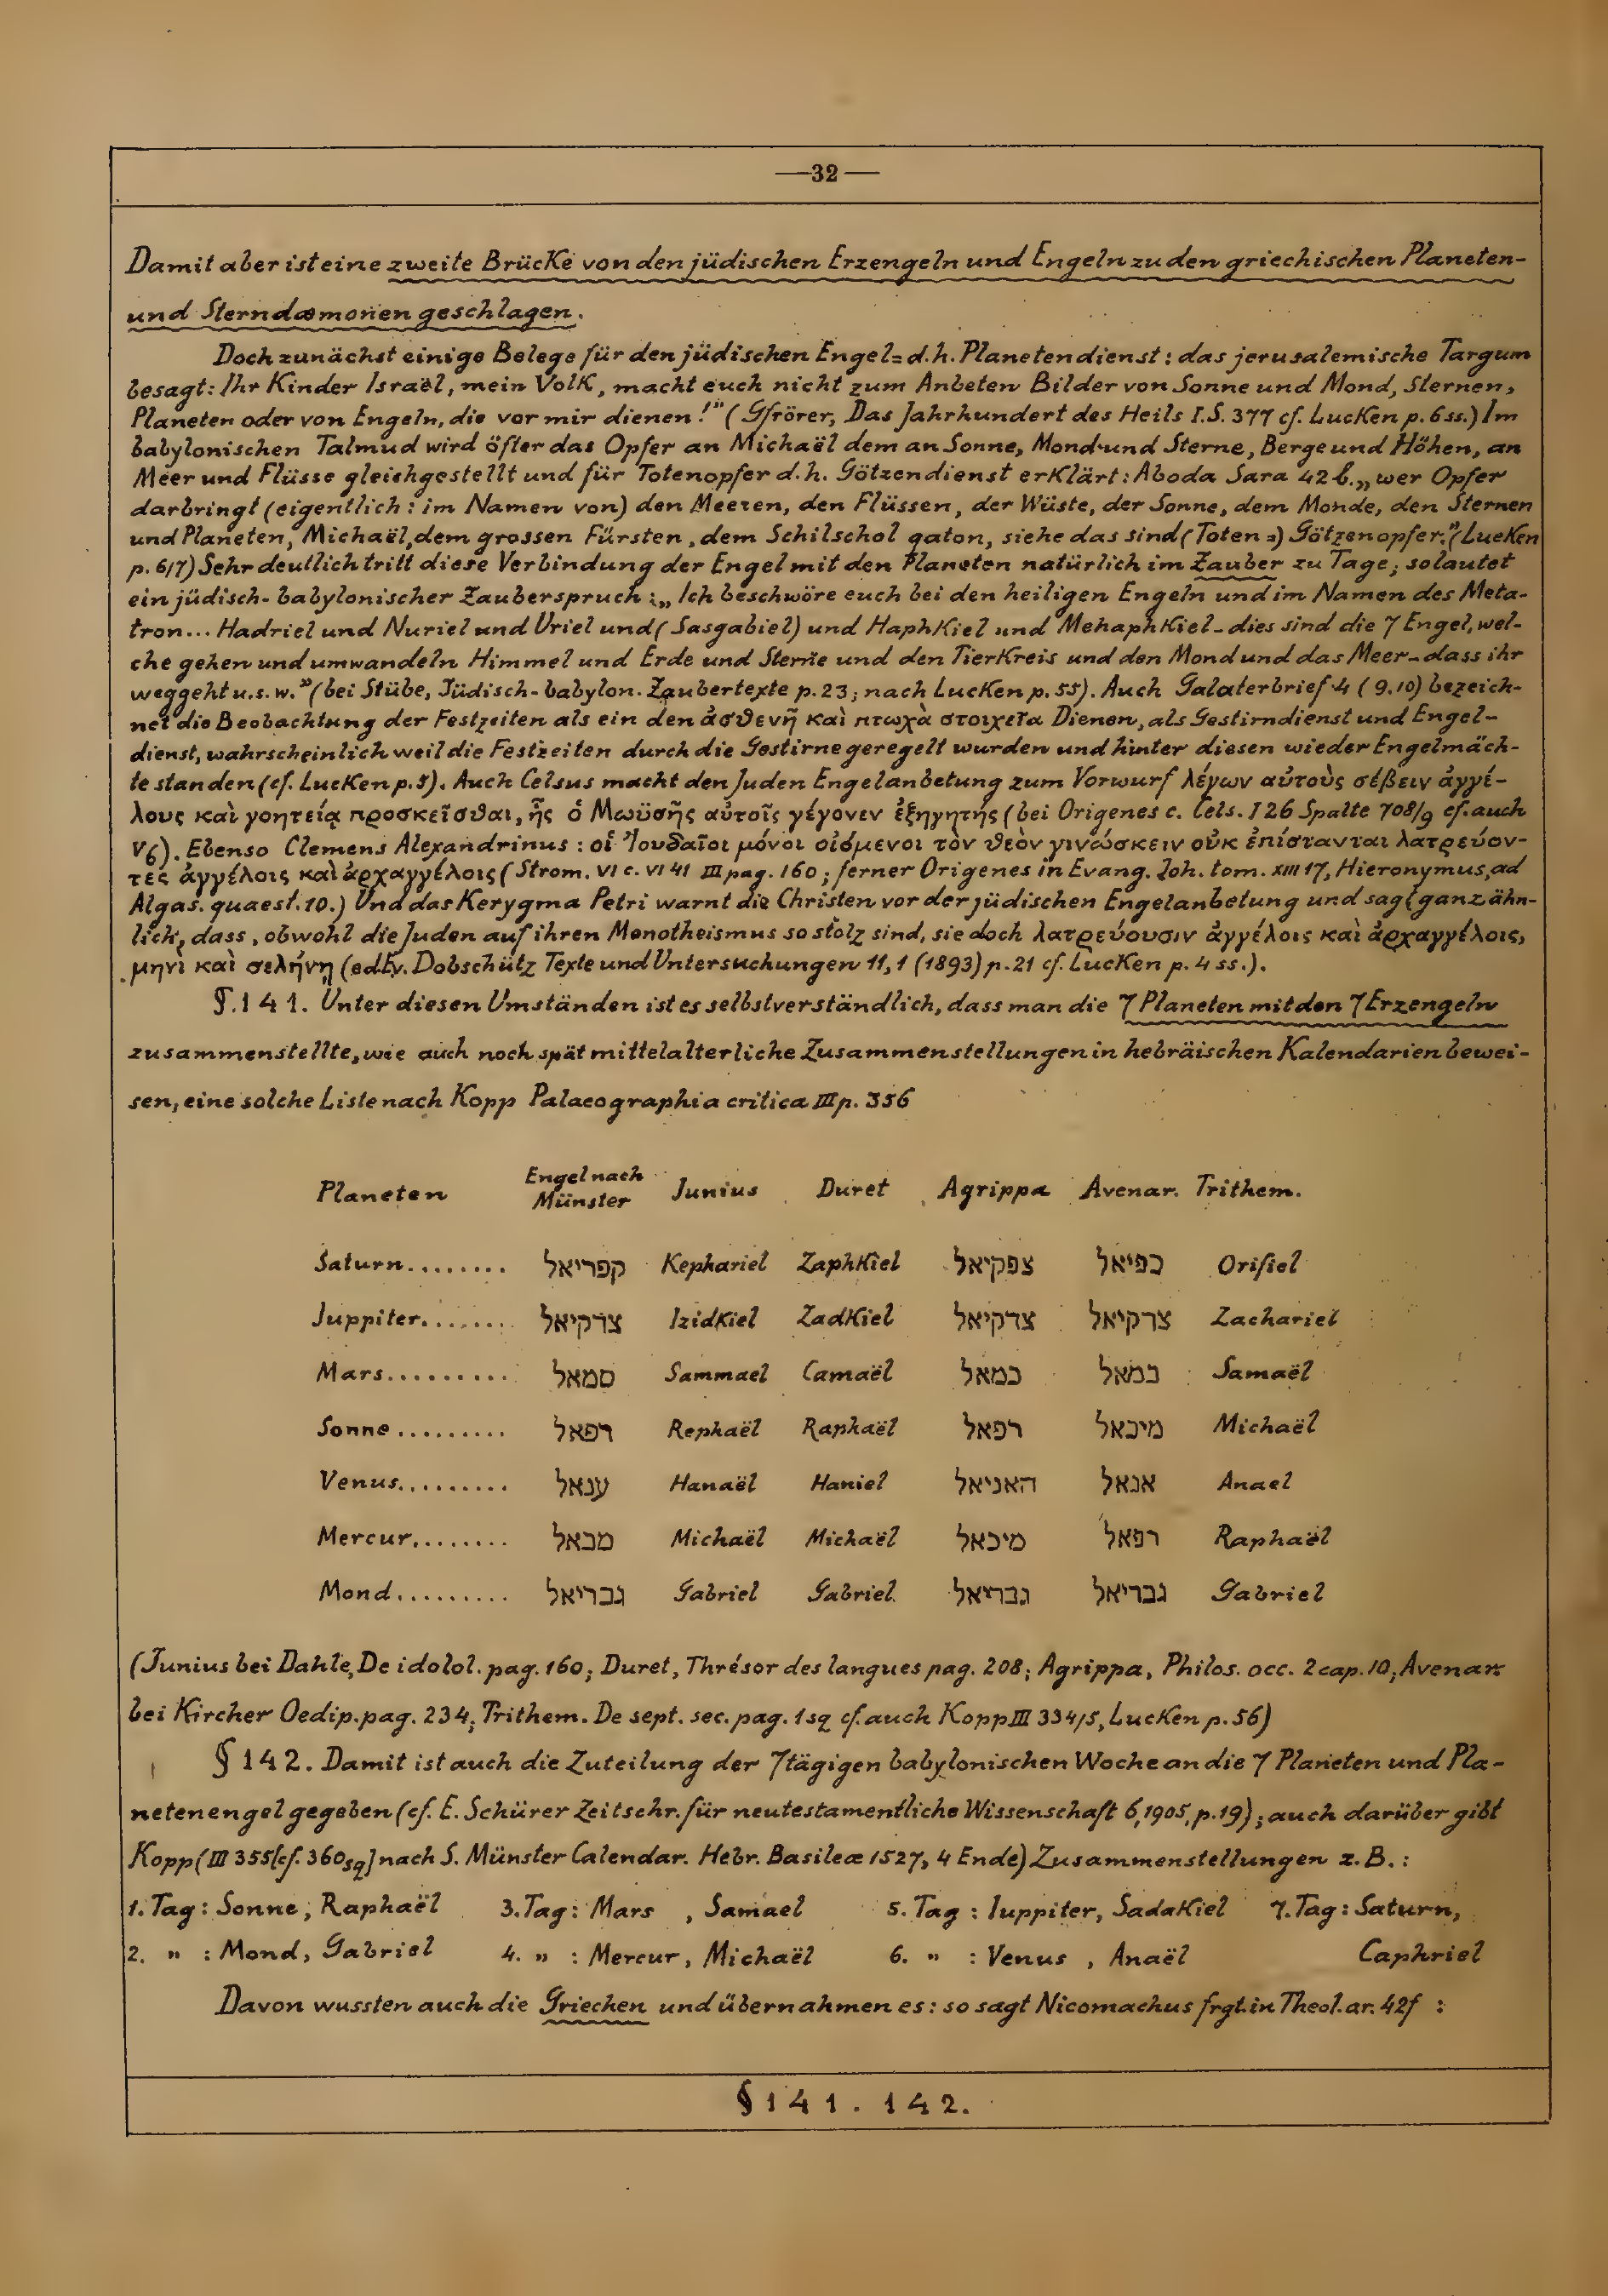 —32—
Damit aber ist eine zweite Brücke von den jüdischen Erzengeln und Engeln zu den griechischen Planeten-
und Sterndæmonen geschlagen.
Doch zunächst einige Belege für den jüdischen Engel= d.h. Planetendienst: das jerusalemische Targum
besagt: Ihr Kinder Israël, mein Volk, macht euch nicht zum Anbeten Bilder von Sonne und Mond, Sternen,
Planeten oder von Engeln, die vor mir dienen!" (Gfrörer, Das Jahrhundert des Heils I.S. 377 cf. Lucken p. 6ss.) Im
babylonischen Talmud wird öfter das Opfer an Michaël dem an Sonne, Mond und Sterne, Berge und Höhen, an
Meer und Flüsse gleichgestellt und für Totenopfer d.h. Götzendienst erklärt: Aboda Sara 42 b. „wer Opfer
darbringt (eigentlich: im Namen von) den Meeren, den Flüssen, der Wüste, der Sonne, dem Monde, den Sternen
und Planeten, Michaël, dem grossen Fürsten, dem Schilschol qaton, siehe das sind (Toten =) Götzenopfer." (Lueken
p. 6/7) Sehr deutlich tritt diese Verbindung der Engel mit den Planeten natürlich im Zauber zu Tage; so lautet
ein jüdisch-babylonischer Zauberspruch: „Ich beschwöre euch bei den heiligen Engeln und im Namen des Meta-
tron... Hadriel und Nuriel und Uriel und (Sasgabiel) und Haphkiel und Mehaphkiel – dies sind die 7 Engel, wel-
che gehen und umwandeln Himmel und Erde und Sterne und den Tierkreis und den Mond und das Meer – dass ihr
weggeht u.s.w." (bei Stübe, Jüdisch-babylon. Zaubertexte p. 23; nach Lucken p. 55). Auch Galaterbrief 4 (9.10) bezeich-
net die Beobachtung der Festzeiten als ein den ἀσθενῆ καὶ πτωχὰ στοιχεῖα Dienen, als Gestirndienst und Engel-
dienst, wahrscheinlich weil die Festzeiten durch die Gestirne geregelt wurden und hinter diesen wieder Engelmäch-
te standen (cf. Lucken p. 5). Auch Celsus macht den Juden Engelanbetung zum Vorwurf λέγων αὐτοὺς σέβειν ἀγγέ-
λους καὶ γοητείᾳ προσκεῖσθαι, ἧς ὁ Μωϋσῆς αὐτοῖς γέγονεν ἐξηγητής (bei Origenes c. Cels. I 26 Spalte 708/9 cf. auch
V6). Ebenso Clemens Alexandrinus: οἱ Ἰουδαῖοι μόνοι οἰόμενοι τὸν θεὸν γινώσκειν οὐκ ἐπίστανται λατρεύον-
τες ἀγγέλοις καὶ ἀρχαγγέλοις (Strom. VI c. VI 41 III pag. 160; ferner Origenes in Evang. Joh. tom. XIII 17, Hieronymus, ad
Algas. quaest. 10.) Und das Kerygma Petri warnt die Christen vor der jüdischen Engelanbetung und sagt ganz ähn-
lich, dass, obwohl die Juden auf ihren Monotheismus so stolz sind, sie doch λατρεύουσιν ἀγγέλοις καὶ ἀρχαγγέλοις,
μηνὶ καὶ σελήνῃ (ed. v. Dobschütz Texte und Untersuchungen 11, 1 (1893) p. 21 cf. Lucken p. 4 ss.).
§. 141. Unter diesen Umständen ist es selbstverständlich, dass man die 7 Planeten mit den 7 Erzengeln
zusammenstellte, wie auch noch spät mittelalterliche Zusammenstellungen in hebräischen Kalendarien bewei-
sen, eine solche Liste nach Kopp Palaeographia critica III p. 356
Planeten Engel nach Münster Junius Duret Agrippa Avenar. Trithem.
Saturn........ קפריאל Kephariel Zaphkiel צפקיאל כפיאל Orifiel
Juppiter........ צדקיאל Izidkiel Zadkiel צדקיאל צדקיאל Zachariel
Mars.......... סמאל Sammael Camaël כמאל כמאל Samaël
Sonne......... רפאל Rephaël Raphaël רפאל מיכאל Michaël
Venus......... ענאל Hanaël Haniel האניאל אנאל Anael
Mercur........ מכאל Michaël Michaël מיכאל רפאל Raphaël
Mond......... גבריאל Gabriel Gabriel גבריאל גבריאל Gabriel
(Junius bei Dahle, De idolol. pag. 160; Duret, Thrésor des langues pag. 208; Agrippa, Philos. occ. 2 cap. 10; Avenar:
bei Kircher Oedip. pag. 234; Trithem. De sept. sec. pag. 1sq cf. auch Kopp III 334/5, Lucken p. 56)
§ 142. Damit ist auch die Zuteilung der 7tägigen babylonischen Woche an die 7 Planeten und Pla-
netenengel gegeben (cf. E. Schürer Zeitschr. für neutestamentliche Wissenschaft 6, 1905, p. 19); auch darüber gibt
Kopp (III 355 [cf. 360sq] nach S. Münster Calendar. Hebr. Basileæ 1527, 4 Ende) Zusammenstellungen z.B.:
1. Tag: Sonne, Raphaël 3. Tag: Mars, Samael 5. Tag: Iuppiter, Sadakiel 7. Tag: Saturn,
2. „ : Mond, Gabriel 4. „ : Mercur, Michaël 6. „ : Venus, Anaël Caphriel
Davon wussten auch die Griechen und übernahmen es: so sagt Nicomachus frgt. in Theol. ar. 42f :
§ 141. 142.